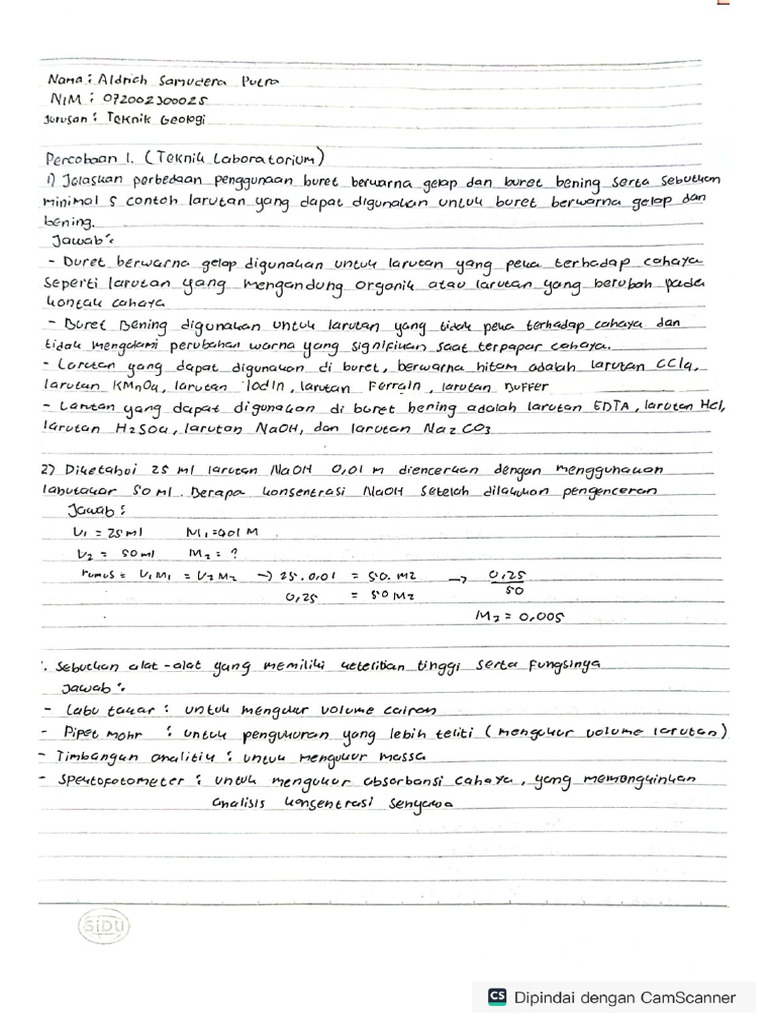 Nama : Aldrich Samudera Putra
NIM : 072002300025
Jurusan : Teknik Geologi
Percobaan 1. (Teknik Laboratorium)
1) Jelaskan perbedaan penggunaan buret berwarna gelap dan buret bening serta sebutkan
minimal 5 contoh larutan yang dapat digunakan untuk buret berwarna gelap dan
bening.
Jawab :
- Buret berwarna gelap digunakan untuk larutan yang peka terhadap cahaya
seperti larutan yang mengandung organik atau larutan yang berubah pada
kontak cahaya
- Buret Bening digunakan untuk larutan yang tidak peka terhadap cahaya dan
tidak mengalami perubahan warna yang signifikan saat terpapar cahaya.
- Larutan yang dapat digunakan di buret, berwarna hitam adalah larutan CCl4,
larutan KMnO4, larutan Iodin, larutan Ferroin, larutan Buffer
- Larutan yang dapat digunakan di buret bening adalah larutan EDTA, larutan HCl,
larutan H2SO4, larutan NaOH, dan larutan Na2CO3
2) Diketahui 25 ml larutan NaOH 0,01 M diencerkan dengan menggunakan
labutakar 50 ml. Berapa konsentrasi NaOH setelah dilakukan pengenceran
Jawab :
V1 = 25 ml M1 = 0,01 M
V2 = 50 ml M2 = ?
rumus = V1M1 = V2M2 -> 25 . 0,01 = 50. M2 -> 0,25
0,25 = 50 M2 50
M2 = 0,005
. Sebutkan alat-alat yang memiliki ketelitian tinggi serta fungsinya
Jawab :
- Labu takar : untuk mengukur volume cairan
- Pipet mohr : untuk pengukuran yang lebih teliti (mengukur volume larutan)
- Timbangan analitik : untuk mengukur massa
- Spektofotometer : untuk mengukur absorbansi cahaya, yang memungkinkan
analisis konsentrasi senyawa
SiDU
CS Dipindai dengan CamScanner